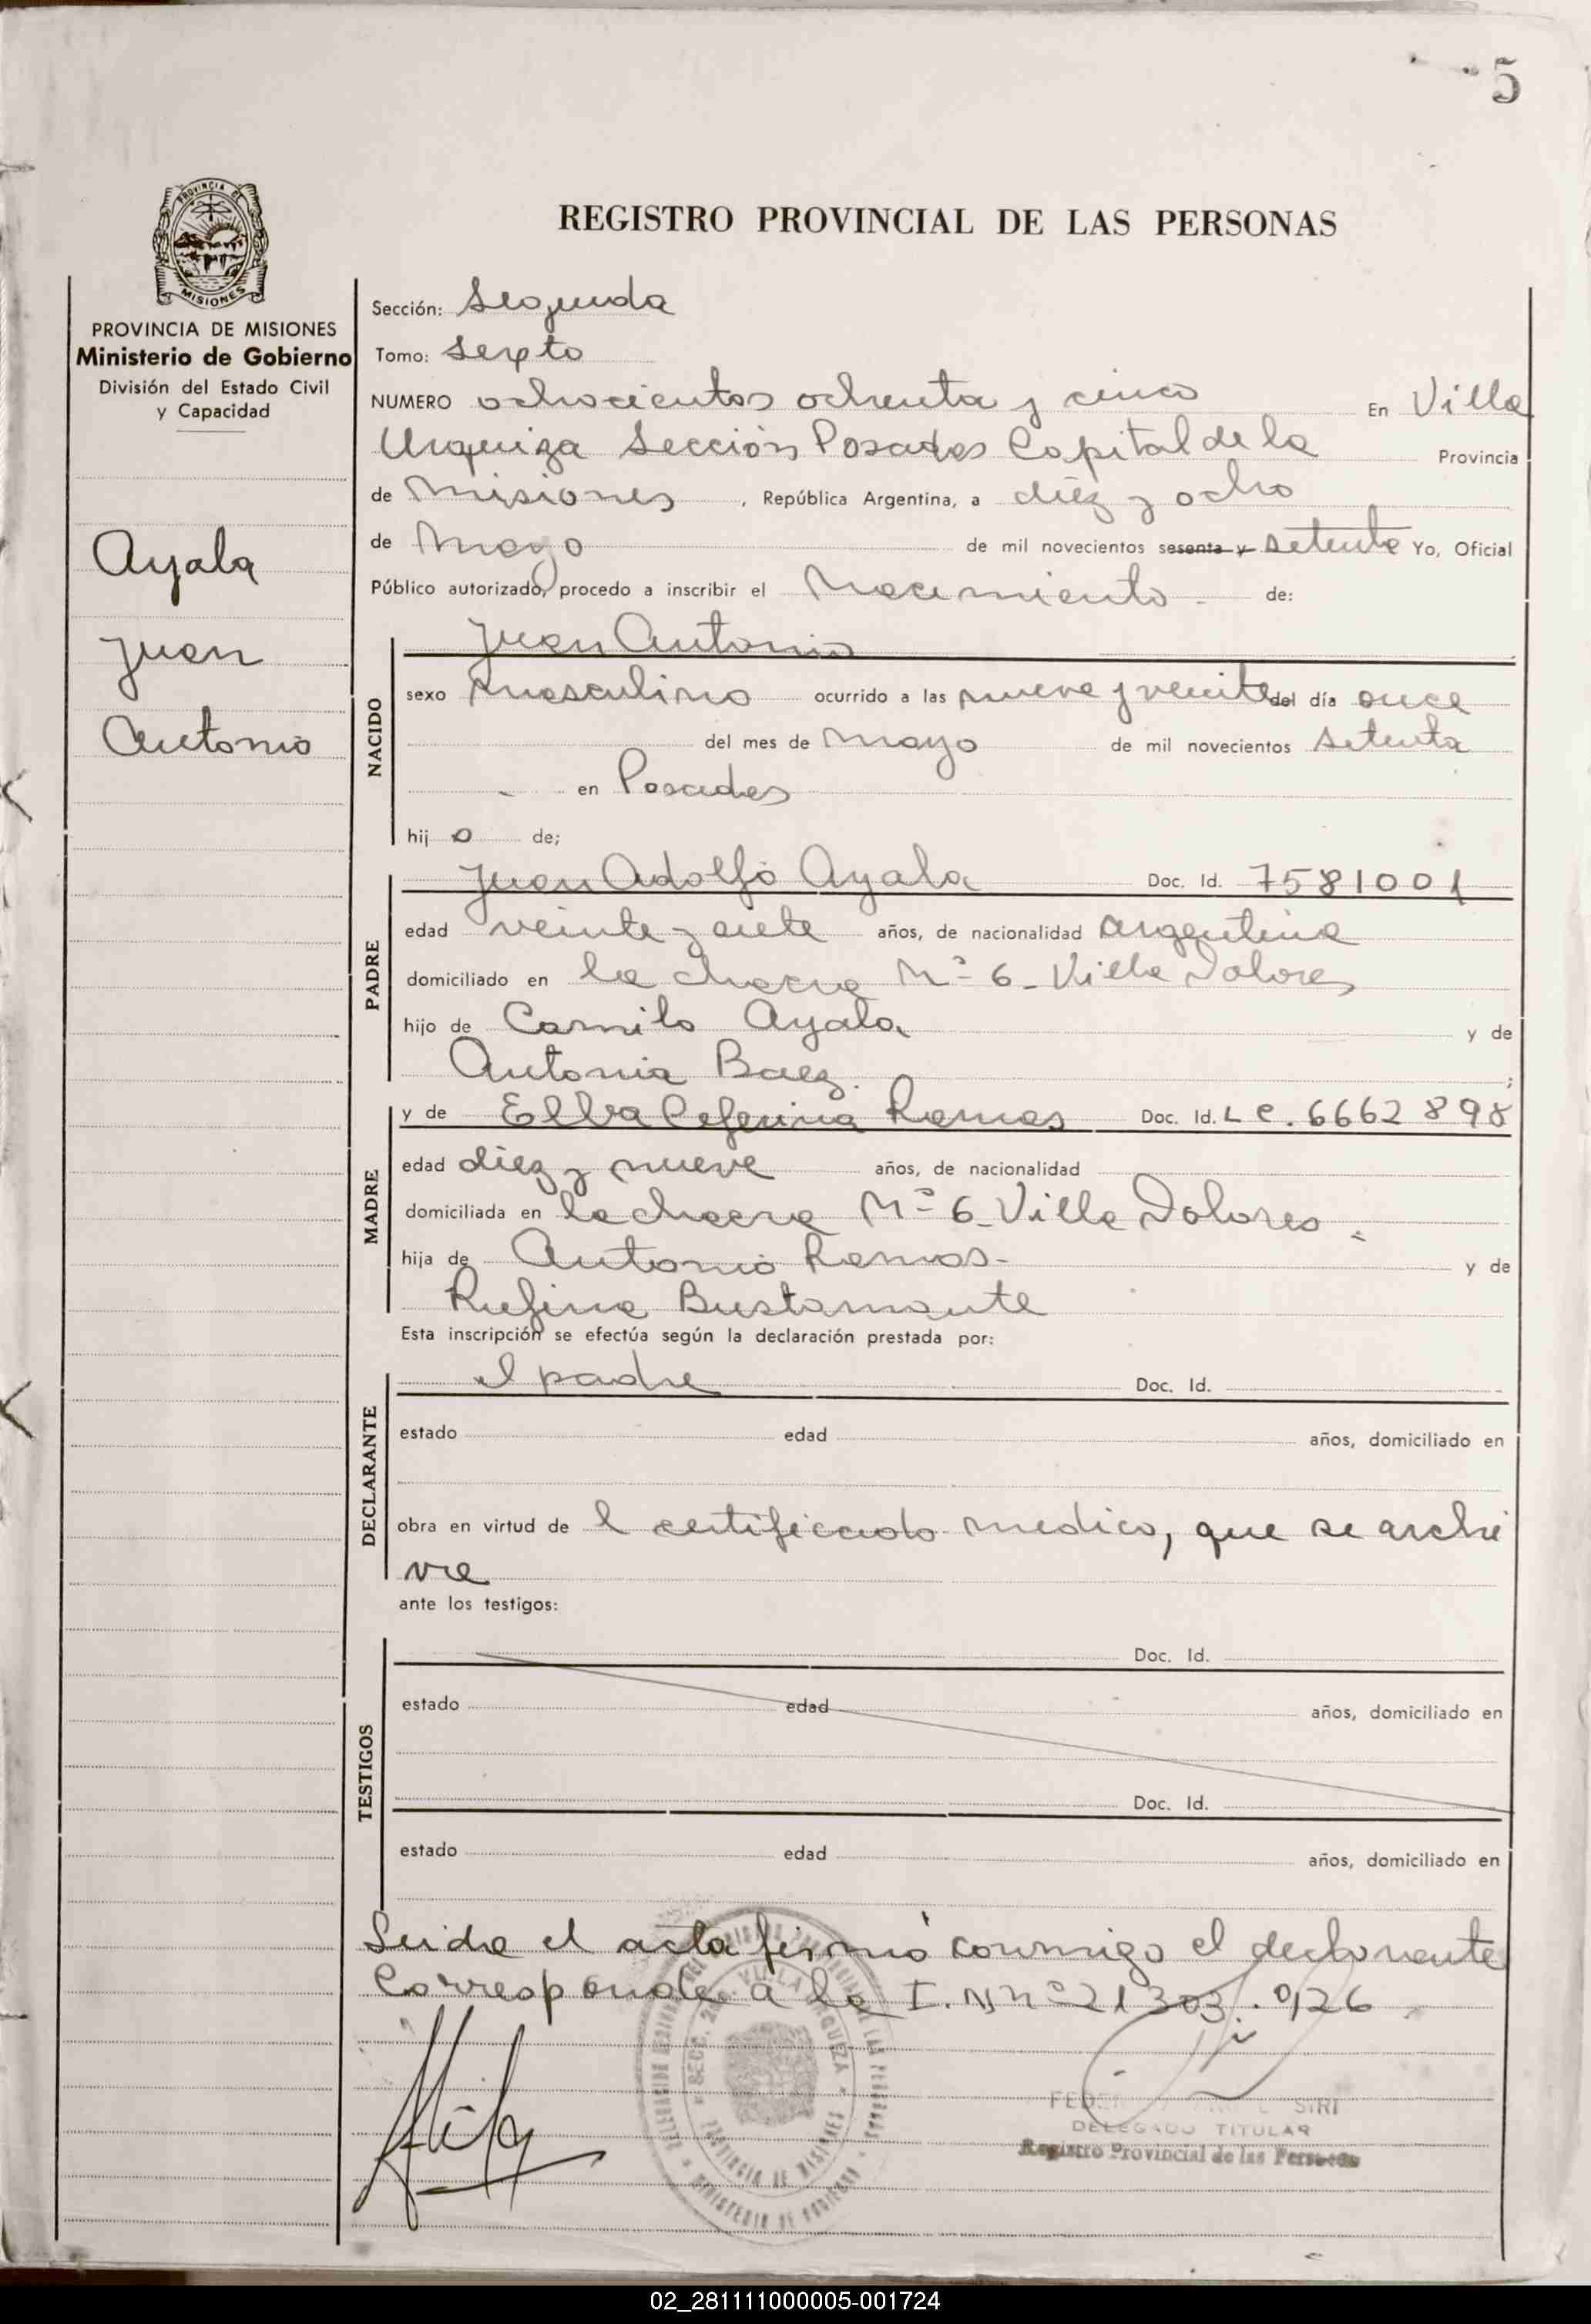 5
PROVINCIA DE
MISIONES
PROVINCIA DE MISIONES
Ministerio de Gobierno
División del Estado Civil
y Capacidad
Ayala
Juan
Antonio
REGISTRO PROVINCIAL DE LAS PERSONAS
Sección: Segunda
Tomo: Sexto
NUMERO ochocientos ochenta y cinco En Villa
Urquiza Sección Posadas Capital de la Provincia
de Misiones, República Argentina, a diez y ocho
de Mayo de mil novecientos sesenta y setenta Yo, Oficial
Público autorizado, procedo a inscribir el Nacimiento de:
NACIDO
Juan Antonio
sexo masculino ocurrido a las nueve y veinte del día once
del mes de Mayo de mil novecientos setenta
en Posadas
hij o de;
PADRE
Juan Adolfo Ayala Doc. Id. 7581001
edad veinte y siete años, de nacionalidad argentina
domiciliado en la chacra Nº 6 - Villa Dolores
hijo de Camilo Ayala y de
Antonia Baez.
MADRE
y de Elba Ceferina Ramos Doc. Id. L C. 6662898
edad diez y nueve años, de nacionalidad
domiciliada en la chacra Nº 6 - Villa Dolores.
hija de Antonio Ramos - y de
Rufina Bustamante
Esta inscripción se efectúa según la declaración prestada por:
DECLARANTE
el padre Doc. Id.
estado edad años, domiciliado en
obra en virtud de l certificado medico, que se archi
va
ante los testigos:
TESTIGOS
Doc. Id.
estado edad años, domiciliado en
Doc. Id.
estado edad años, domiciliado en
Leida el acta firmó conmigo el declarante
Corresponde a la I. N nº 21.303.026
DELEGADO TITULAR
Registro Provincial de las Personas
PROVINCIA DE MISIONES
MINISTERIO DE GOBIERNO
02_281111000005-001724